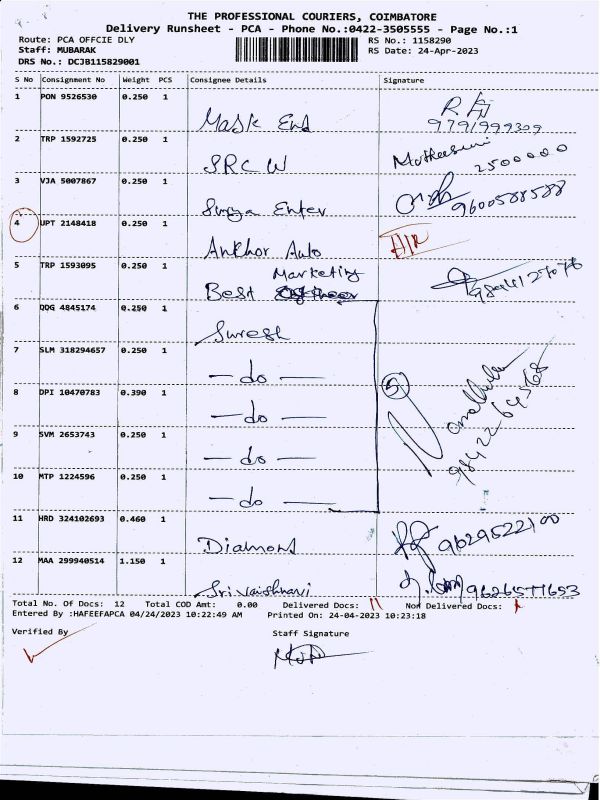 THE PROFESSIONAL COURIERS, COIMBATORE
Delivery Runsheet - PCA - Phone No.:0422-3505555 - Page No.:1
Route: PCA OFFCIE DLY RS No.: 1158290
Staff: MUBARAK RS Date: 24-Apr-2023
DRS No.: DCJB115829001
S No Consignment No Weight PCS Consignee Details Signature
1 PON 9526530 0.250 1
Mask End 9791999309
2 TRP 1592725 0.250 1
SRC W 2500000
3 VJA 5007867 0.250 1
Surya Enter 9600588588
4 UPT 2148418 0.250 1
Ankhor Auto
5 TRP 1593095 0.250 1
Marketing
Best
6 QQG 4845174 0.250 1
Suresh
7 SLM 318294657 0.250 1
- do -
8 DPI 10470783 0.390 1
- do -
5
9 SVM 2653743 0.250 1
- do -
10 MTP 1224596 0.250 1
- do -
11 HRD 324102693 0.460 1
Diamond 9629522100
12 MAA 299940514 1.150 1
Srivaishnavi 9626577653
Total No. Of Docs: 12 Total COD Amt: 0.00 Delivered Docs: 11 Non Delivered Docs: 1
Entered By :HAFEEFAPCA 04/24/2023 10:22:49 AM Printed On: 24-04-2023 10:23:18
Verified By Staff Signature